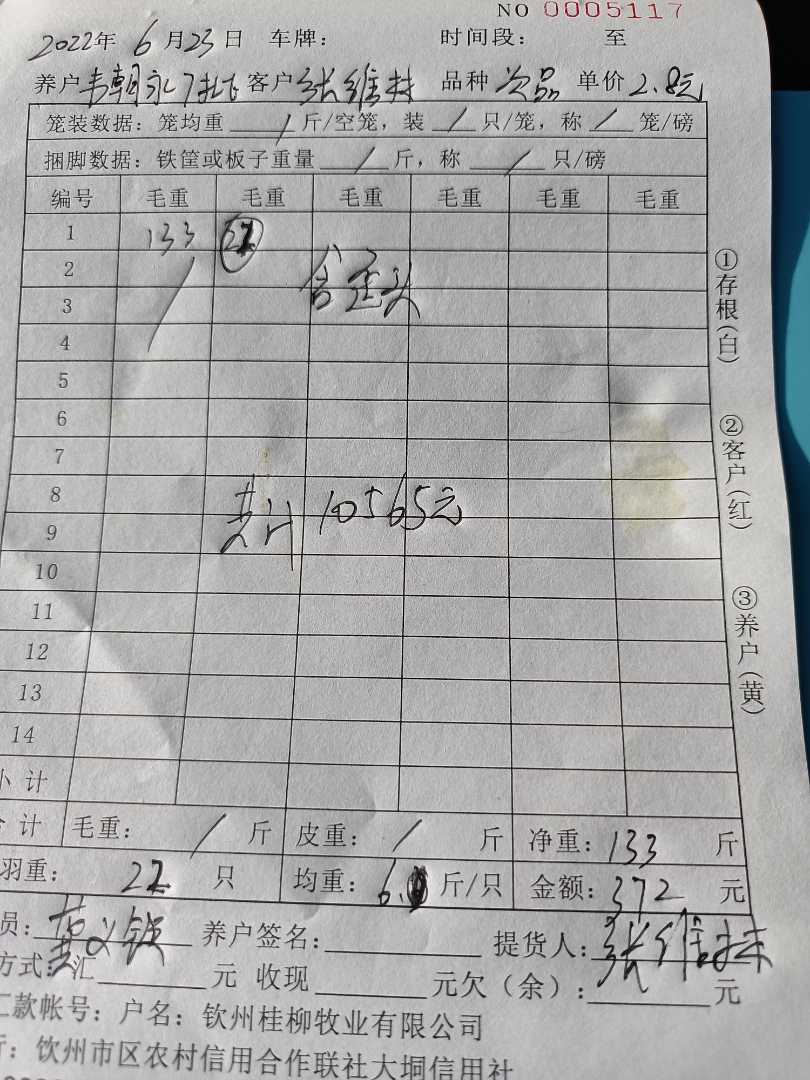 NO 0005117
2022年 6月23日 车牌： 时间段： 至
养户 韦朝永 客户 张维林 品种 次品 单价 2.8元
笼装数据：笼均重 / 斤/空笼，装 / 只/笼，称 / 笼/磅
捆脚数据：铁筐或板子重量 / 斤，称 / 只/磅
编号 毛重 毛重 毛重 毛重 毛重 毛重
1 133 22
2 含歪头
3
4
5
6
7
8 共计 10565元
9
10
11
12
13
14
小计
合计 毛重： / 斤 皮重： / 斤 净重：133 斤
羽重： 22 只 均重：6. 斤/只 金额：372 元
员： 养户签名： 提货人：张维林
方式：汇 元 收现 元欠（余）： 元
汇款帐号：户名：钦州桂柳牧业有限公司
行：钦州市区农村信用合作联社大垌信用社
①存根(白)
②客户(红)
③养户(黄)